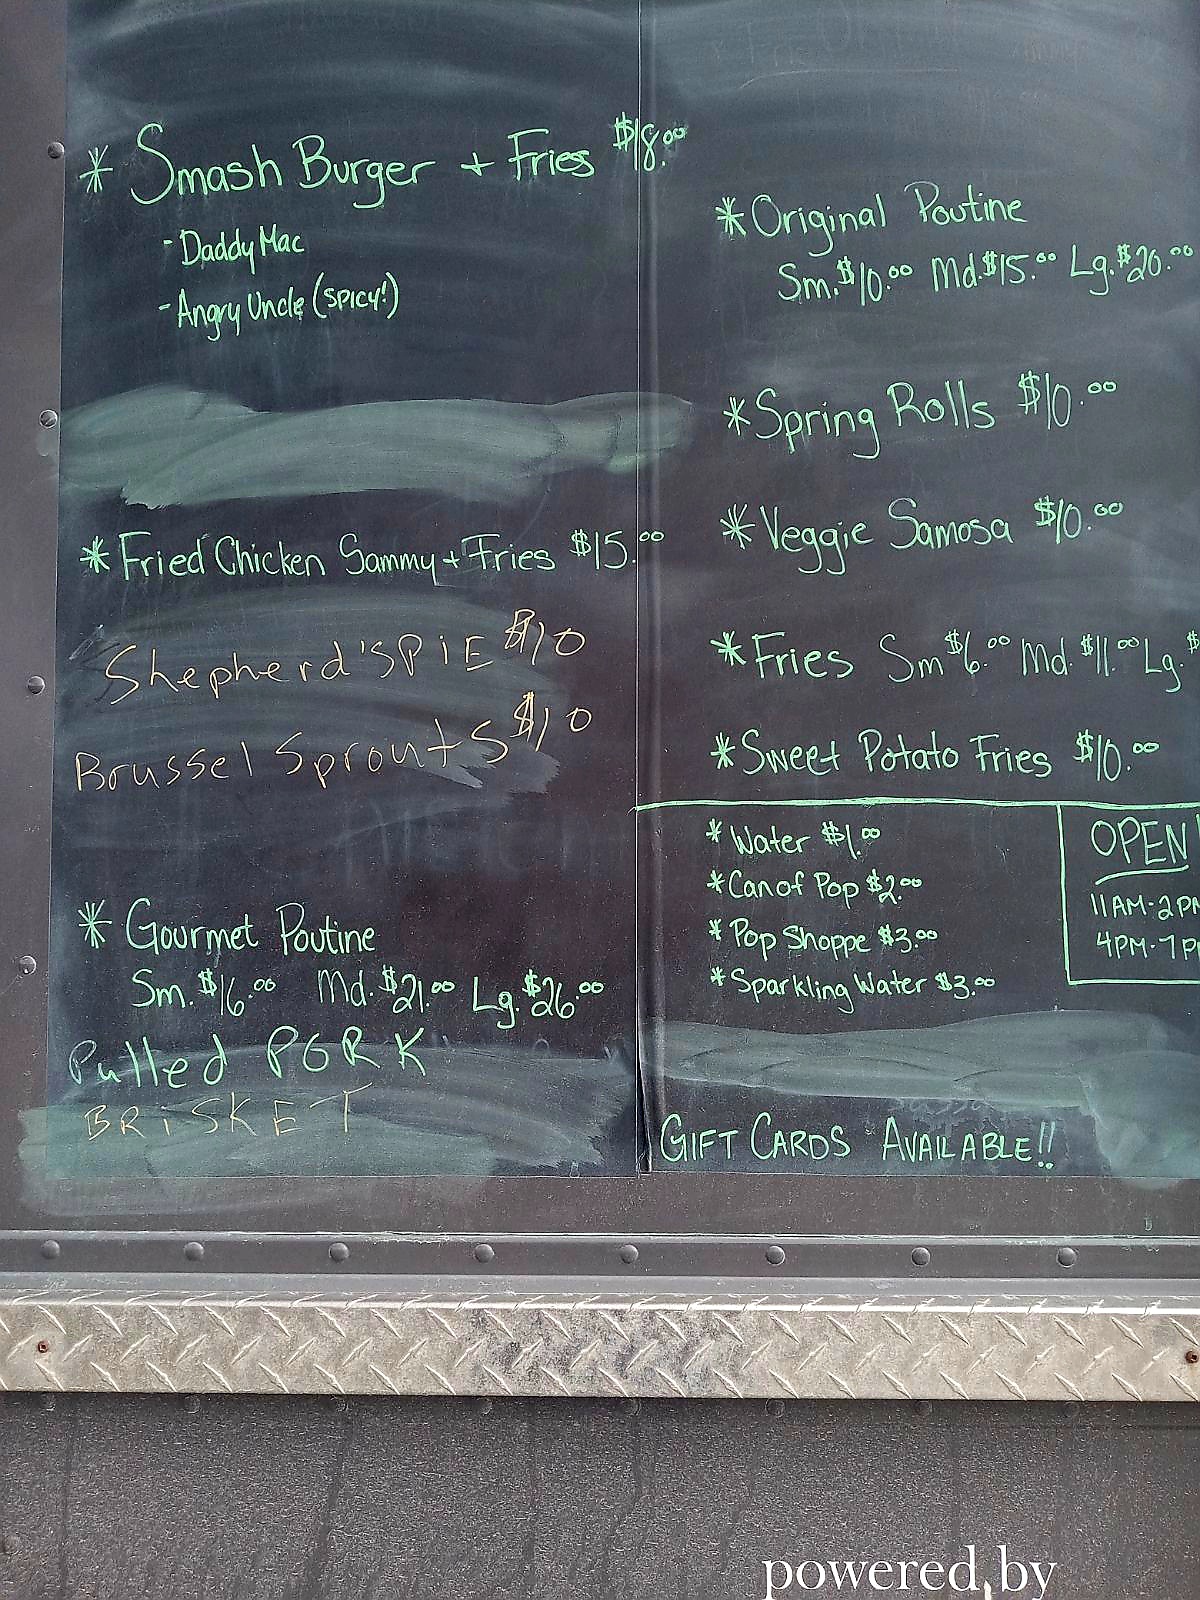 * Smash Burger + Fries $18.00
- Daddy Mac
- Angry Uncle (SPICY!)
* Fried Chicken Sammy + Fries $15.00
Shepherd'S PiE $10
Brussel Sprouts $10
* Gourmet Poutine
Sm. $16.00 Md. $21.00 Lg. $26.00
Pulled PORK
BRiSKET
* Original Poutine
Sm. $10.00 Md. $15.00 Lg. $20.00
* Spring Rolls $10.00
* Veggie Samosa $10.00
* Fries Sm $6.00 Md. $11.00 Lg. $
* Sweet Potato Fries $10.00
* Water $1.00
* Can of Pop $2.00
* Pop Shoppe $3.00
* Sparkling Water $3.00
OPEN
11AM-2PM
4PM-7PM
GIFT CARDS AVAILABLE!!
powered by